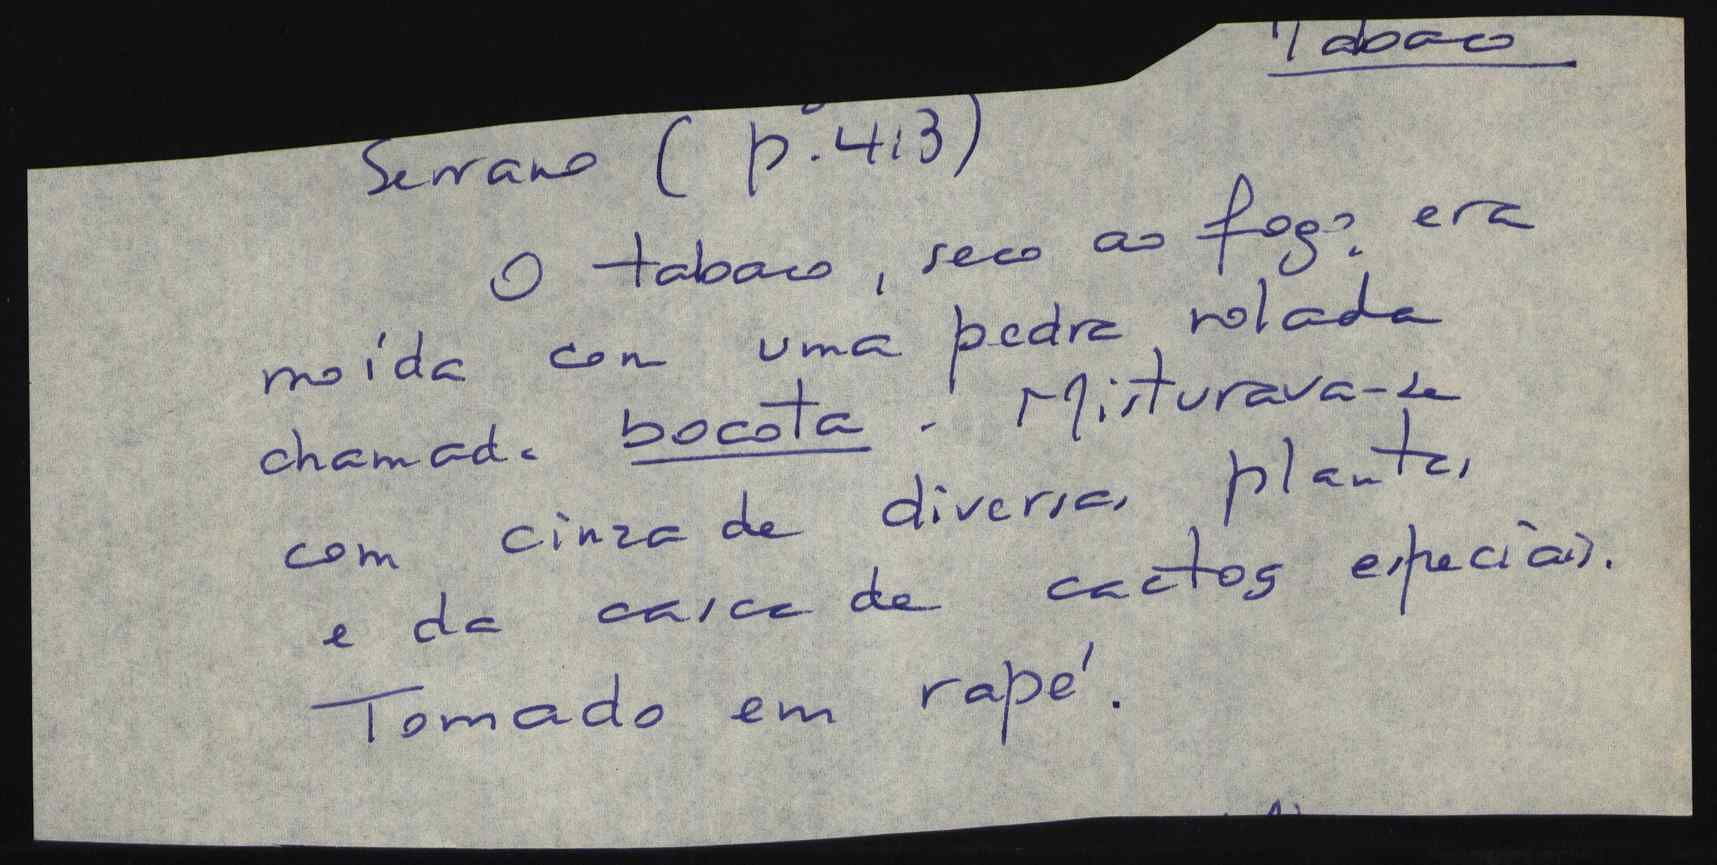 Tabaco
Serrano (p. 413)
O tabaco, seco ao fogo, era
moída com uma pedra rolada
chamada bocota. Misturava-se
com cinza de diversas plantas
e da casca de cactos especiais.
Tomado em rapé.